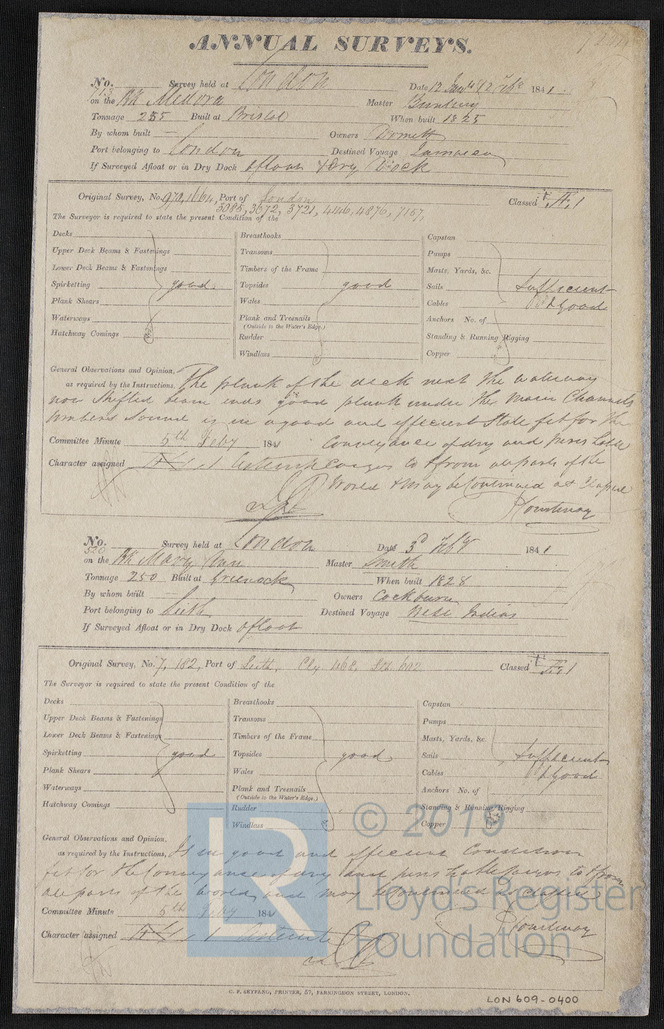 ANNUAL SURVEYS.
No. 515 Survey held at London Date 12 Jany & 2 Feby 1841
on the Bk Medora Master Bunting
Tonnage 255 Built at Bristol When built 1825
By whom built — Owners
Port belonging to London Destined Voyage Jamaica
If Surveyed Afloat or in Dry Dock Afloat & Dry Dock
Original Survey, No. Port of London Classed Æ 1
3721, 4446, 4870, 7157
The Surveyor is required to state the present Condition of the
Decks Breasthooks Capstan
Upper Deck Beams & Fastenings Transoms Pumps
Lower Deck Beams & Fastenings Timbers of the Frame Masts, Yards, &c.
Spirketting good Topsides good Sails Sufficient
Plank Shears Wales Cables & Good
Waterways Plank and Treenails Anchors No. of
(Outside to the Water's Edge.)
Hatchway Comings Rudder Standing & Running Rigging
Windlass Copper
General Observations and Opinion, The plank of the deck next the waterway
as required by the Instructions. now shifted beam ends good plank under the Main Channels
timbers sound is in a good and efficient State fit for the
Committee Minute 5th Feby 1841 Conveyance of dry and perishable
Character assigned Cargoes to & from all parts of the
World & may be Continued at
Courtenay
No. 520 Survey held at London Date 3d Feby 1841
on the Bk Mary Ann Master Smith
Tonnage 250 Built at Greenock When built 1828
By whom built Owners Cockburn
Port belonging to Leith Destined Voyage West Indies
If Surveyed Afloat or in Dry Dock Afloat
Original Survey, No. 7, 182, Port of Leith, Cly 468, Classed Æ 1
The Surveyor is required to state the present Condition of the
Decks Breasthooks Capstan
Upper Deck Beams & Fastenings Transoms Pumps
Lower Deck Beams & Fastenings Timbers of the Frame Masts, Yards, &c.
Spirketting good Topsides good Sails Sufficient
Plank Shears Wales Cables & Good
Waterways Plank and Treenails Anchors No. of
(Outside to the Water's Edge.)
Hatchway Comings Rudder Standing & Running Rigging
Windlass Copper
General Observations and Opinion, Is in good and efficient Condition
as required by the Instructions. fit for the Conveyance of dry and perishable cargoes to & from
all parts of the world, and may be continued
Committee Minute 5th Feby 1841
Character assigned Courtenay
C. F. SEYFANG, PRINTER, 57, FARRINGDON STREET, LONDON.
LON 609-0400
© 2019
LR
Lloyd's Register
Foundation